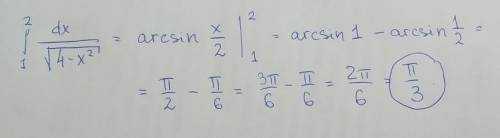 ∫₁² dx/√(4-x²) = arcsin x/2 |₁² = arcsin 1 - arcsin 1/2 =
= π/2 - π/6 = 3π/6 - π/6 = 2π/6 = π/3